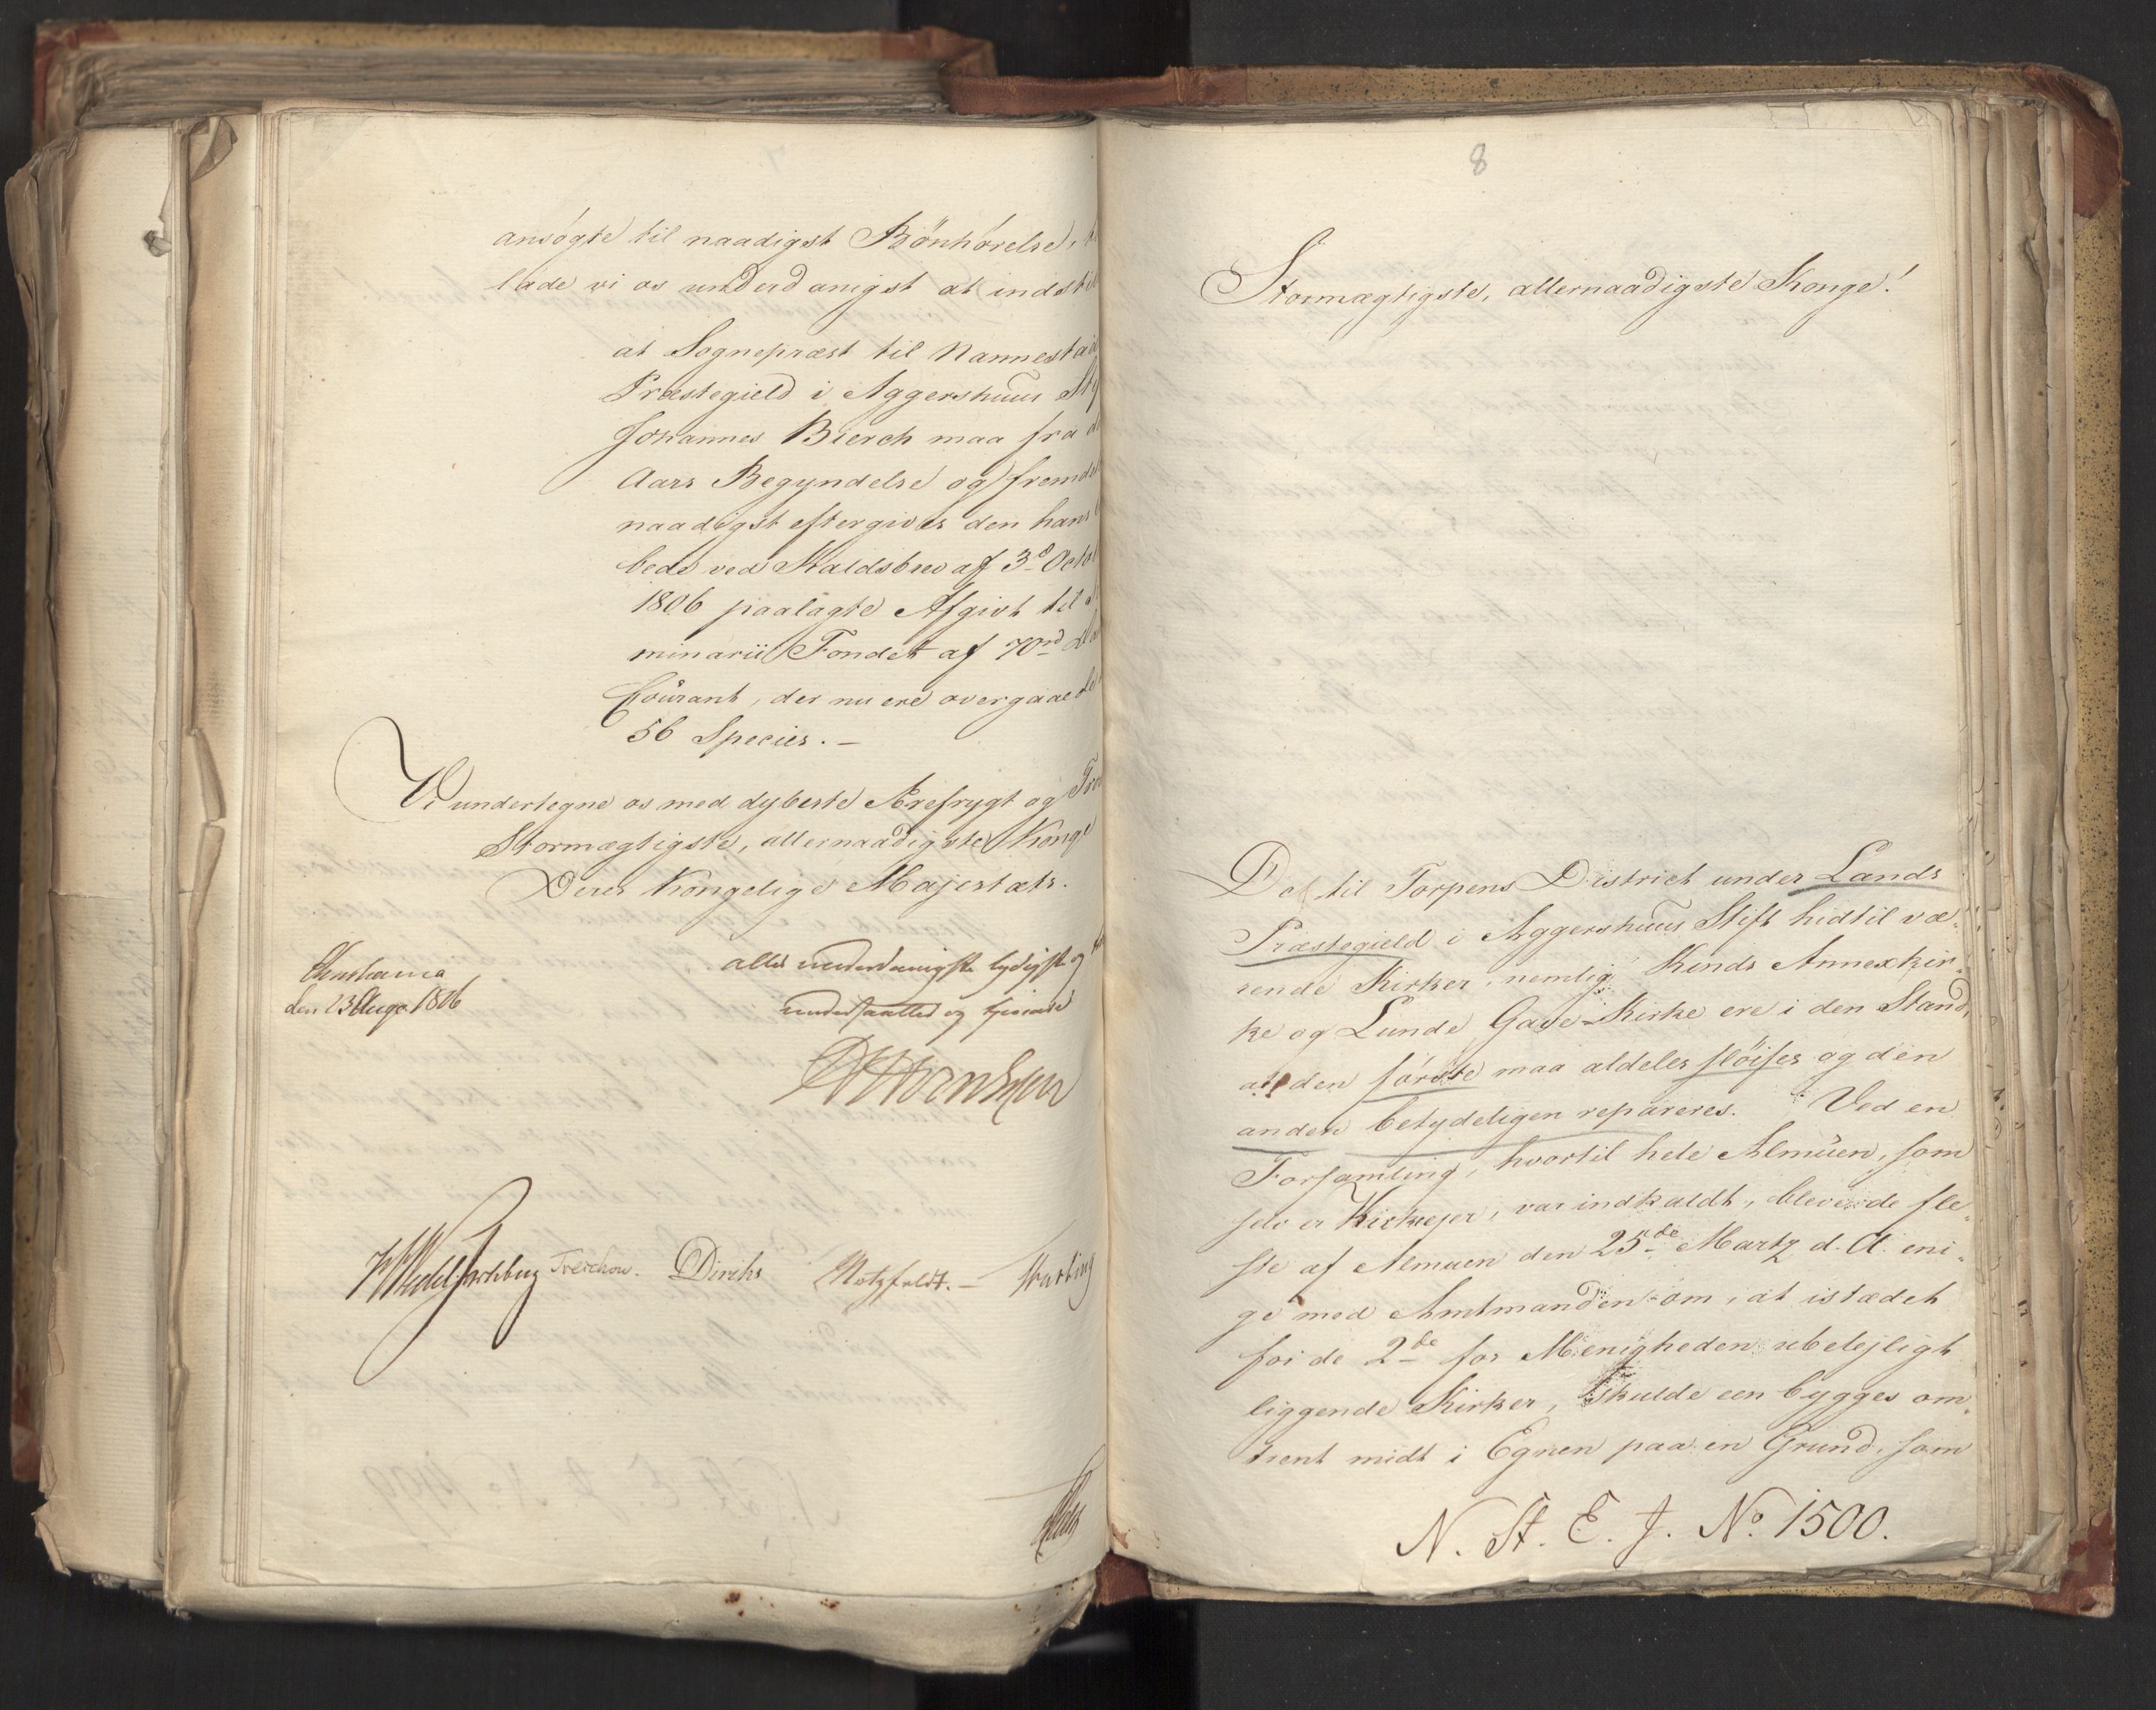 ansögte til naadigst Bönhörelse,
lade vi os underdanigst at indstil
at Sognepræst til Nannestad
Præstegield i Aggershuus Stif
Johannes Bierch maa fra de
Aars Begyndelse og fremde
naadigst eftergives den ham
bede ved Kaldsbrev af 3d Octob
1806 paalagte Afgivt til
minarii Fondet af 70 rd
Courant, der nu ere overgaaede
56 Species. –
Vi undertegne os med dybeste Ærefrygt og
Stormægtigste, allernaadigste Konge
Deres Kongelige Majestæts.
Christiania
den 23 Augs
allerunderdanigste lydigste og
undersaatter og tjenere
Wedel Jarlsberg Treschow. Diriks Motzfeldt. –
8
Stormægtigste, allernaadigste Konge!
De til Torpens District under Lands
Præstegield i Aggershuus Stift hidtil væ-
rende Kirker, nemlig Kinds Annexkir-
ke og Lunde Gave-Kirke ere i den Stand,
at den förste maa aldeles slöifes og den
anden betydeligen repareres. Ved en
Forsamling, hvortil hele Almuen, som
selv er Kirkeejer, var indkaldt, bleve de fle-
ste af Almuen den 25de Martz d. A. eni-
ge med Amtmanden om, at istædet
for de 2de for Menigheden ubelejligt
liggende Kirker, skulde een bygges om-
trent midt i Egnen paa en Grund, som
N. St. E. J. No 1500.